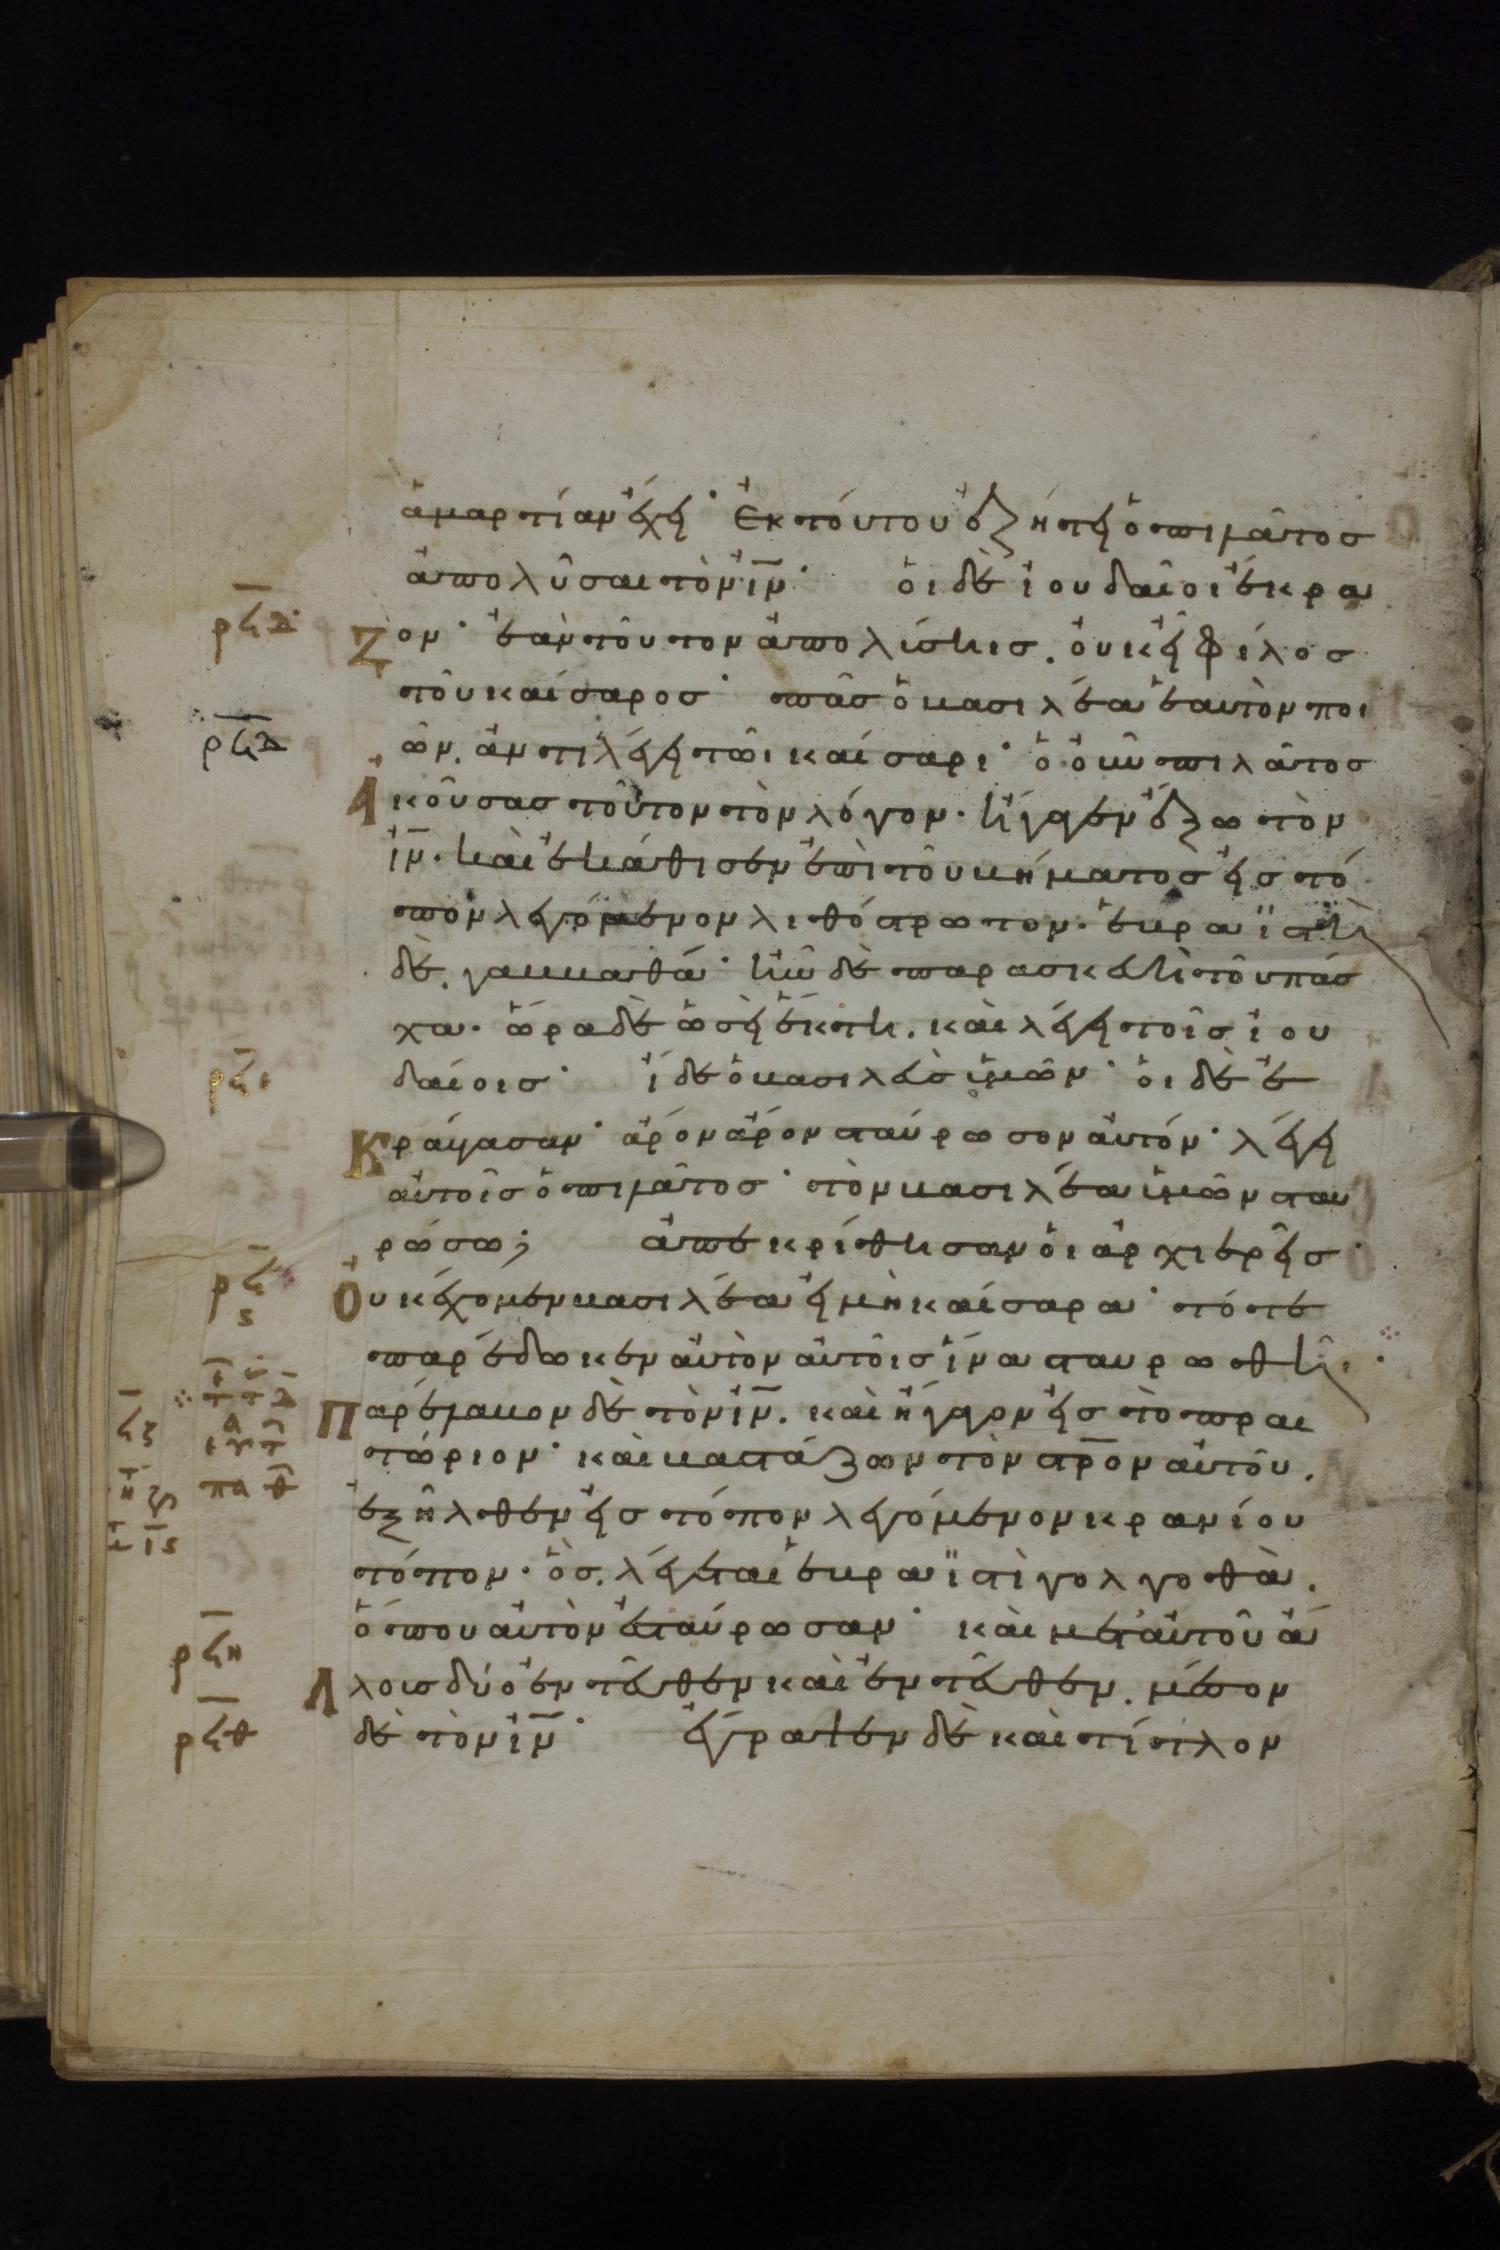 ἁμαρτίαν ἔχει· Ἐκ τούτου ἐζήτει ὁ πιλᾶτος
ἀπολῦσαι τὸν ιν̅· οἱ δὲ ἰουδαῖοι ἔκρα
ρϟδ
ζον· ἐὰν τοῦτον ἀπολύσης. οὐκ εἶ φίλος
τοῦ καίσαρος· πᾶς ὁ βασιλέα ἑαυτὸν ποι
ρϟδ
ῶν. ἀντιλέγει τῶι καίσαρι· ὁ οὖν πιλᾶτος
Ἀκούσας τοῦτον τὸν λόγον. ἤγαγεν ἔξω τὸν
ιν̅. καὶ ἐκάθισεν ἐπὶ τοῦ βήματος εἰς τό
πον λεγόμενον λιθόστρωτον. ἑβραϊστὶ
δὲ. γαββαθά· ἦν δὲ παρασκευὴ τοῦ πάσ
χα. ὥρα δὲ ὡσεὶ ἕκτη. καὶ λέγει τοῖς ἰου
ρϟε
δαίοις· ἴδε ὁ βασιλεὺς ὑμῶν· οἱ δὲ ἐ
Κραύγασαν· ἆρον ἆρον σταύρωσον αὐτόν· λέγει
αὐτοῖς ὁ πιλᾶτος· τὸν βασιλέα ὑμῶν σταυ
ρώσω; ἀπεκρίθησαν οἱ ἀρχιερεῖς·
ρϟς
Οὐκ ἔχομεν βασιλέα εἰ μὴ καίσαρα· τότε
παρέδωκεν αὐτὸν αὐτοῖς ἵνα σταυρωθῆ·
Παρέλαβον δὲ τὸν ιν̅. καὶ ἤγαγον εἰς τὸ πραι
τώριον· καὶ βαστάζων τὸν στρ̅ον αὐτοῦ.
ἐξῆλθεν εἰς τόπον λεγόμενον κρανίου
τόπον. ὃς. λέγεται ἑβραϊστὶ γολγοθὰ.
ὅπου αὐτὸν ἐσταύρωσαν· καὶ μετ' αὐτοῦ ἄ
ρϟη
Λλους δύο ἐντεῦθεν καὶ ἐντεῦθεν. μέσον
ρϟθ
δὲ τὸν ιν̅· ἔγραψεν δὲ καὶ τίτλον